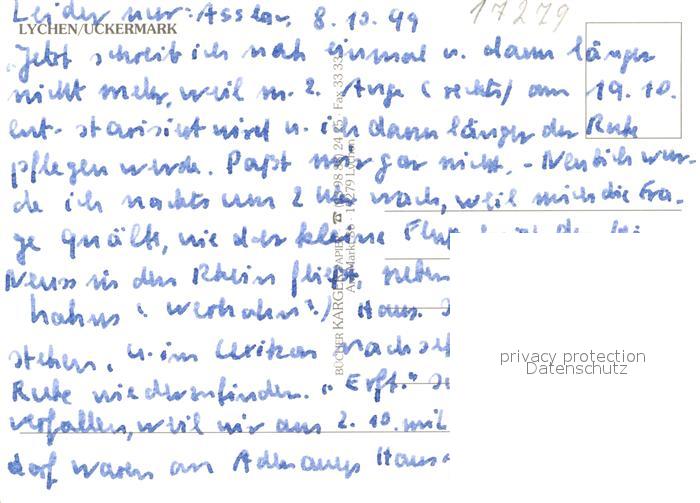 Leider nur: Asslar, 8.10.99
17279
LYCHEN/UCKERMARK
Jetzt schreib ich noch einmal u. dann länger
nicht mehr, weil m. 2. Auge (rechts) am 19. 10.
ent-starisiert wird u. ich dann länger der Ruhe
pflegen werde. Paßt mir gar nicht. - Neulich wur-
de ich nachts um 2 Uhr wach, weil mich die Fra-
ge quälte, wie der kleine
Neuss in den Rhein fließt, neben
hahns (Werhahn?) Haus.
stehen, u. im Lexikon nachse
Ruhe wiederzufinden. "Erft."
verfallen, weil wir am 2. 10. mit
dorf waren an Adenauers Haus
BÜCHER KARGER PAPIER
Am Markt 17279 Lychen
privacy protection
Datenschutz